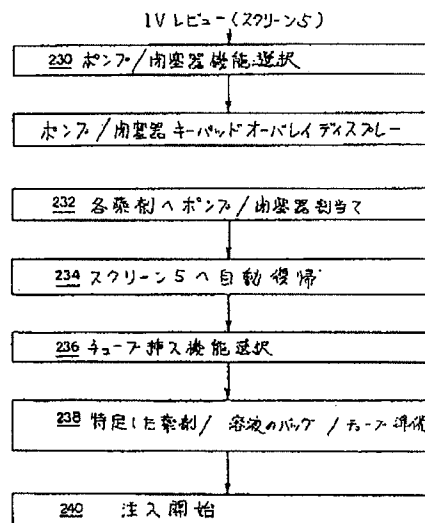 IVレビュー(スクリーン5)
230 ポンプ/閉塞器機能選択
ポンプ/閉塞器キーパッドオーバレイディスプレー
232 各薬剤へポンプ/閉塞器割当て
234 スクリーン5へ自動復帰
236 チューブ挿入機能選択
238 特定した薬剤/溶液のバッグ/チューブ準備
240 注入開始